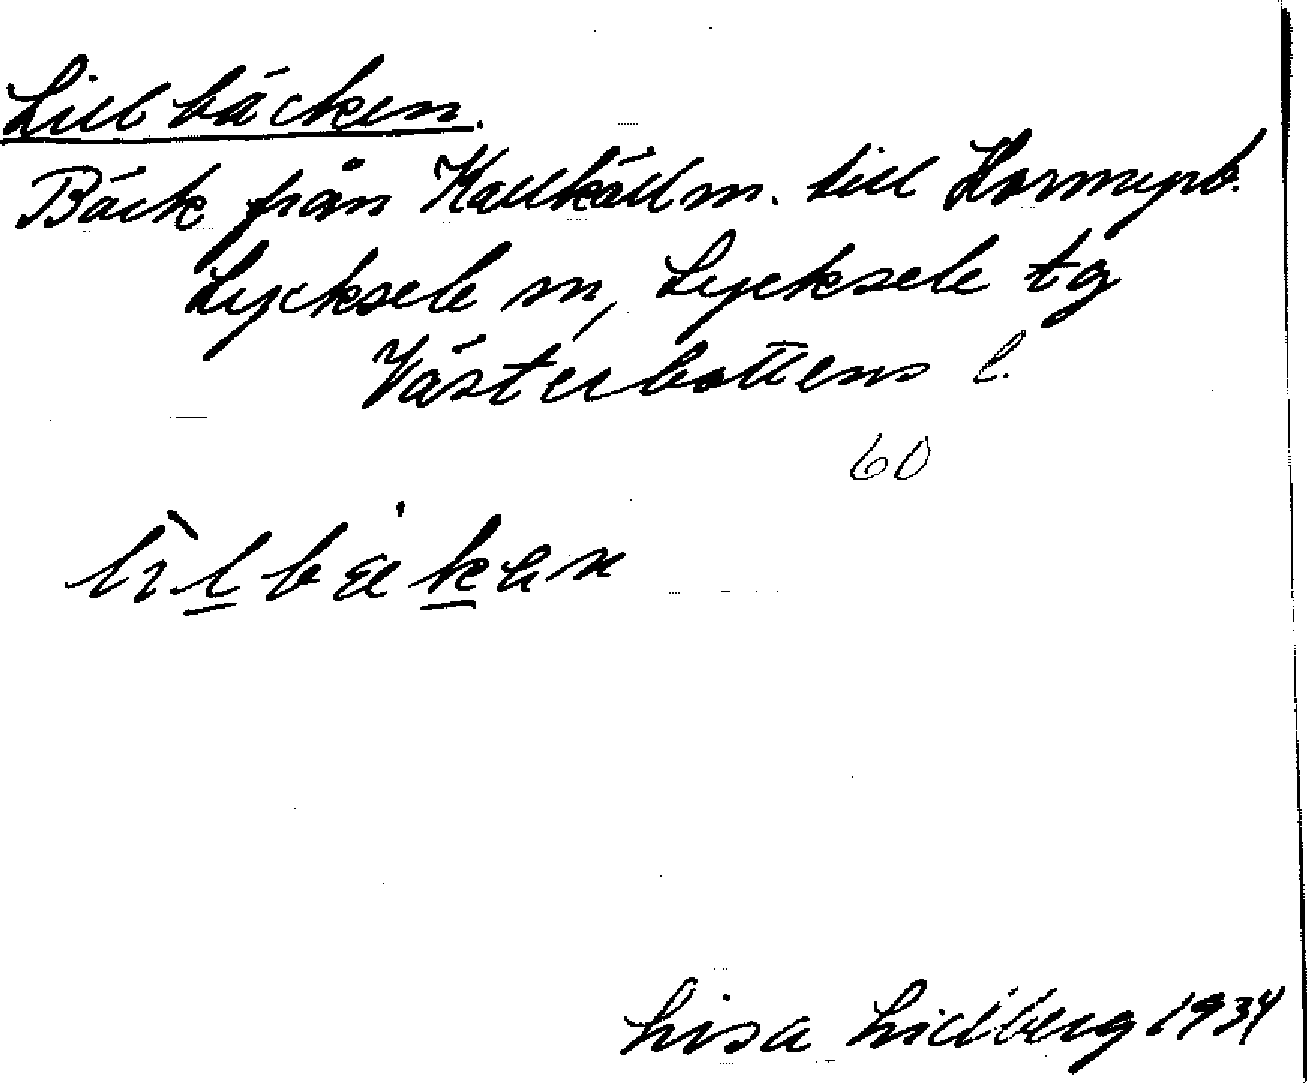 Lillbäcken.
Bäck från Kallkällm. till
Lycksele sn, Lycksele tg
Västerbottens l.
60
Lisa Lidberg 1934